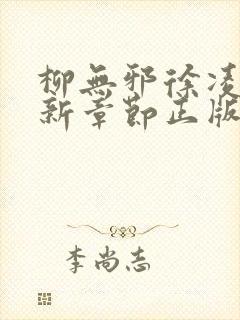 柳無邪徐凌
新章節正版
李尚志